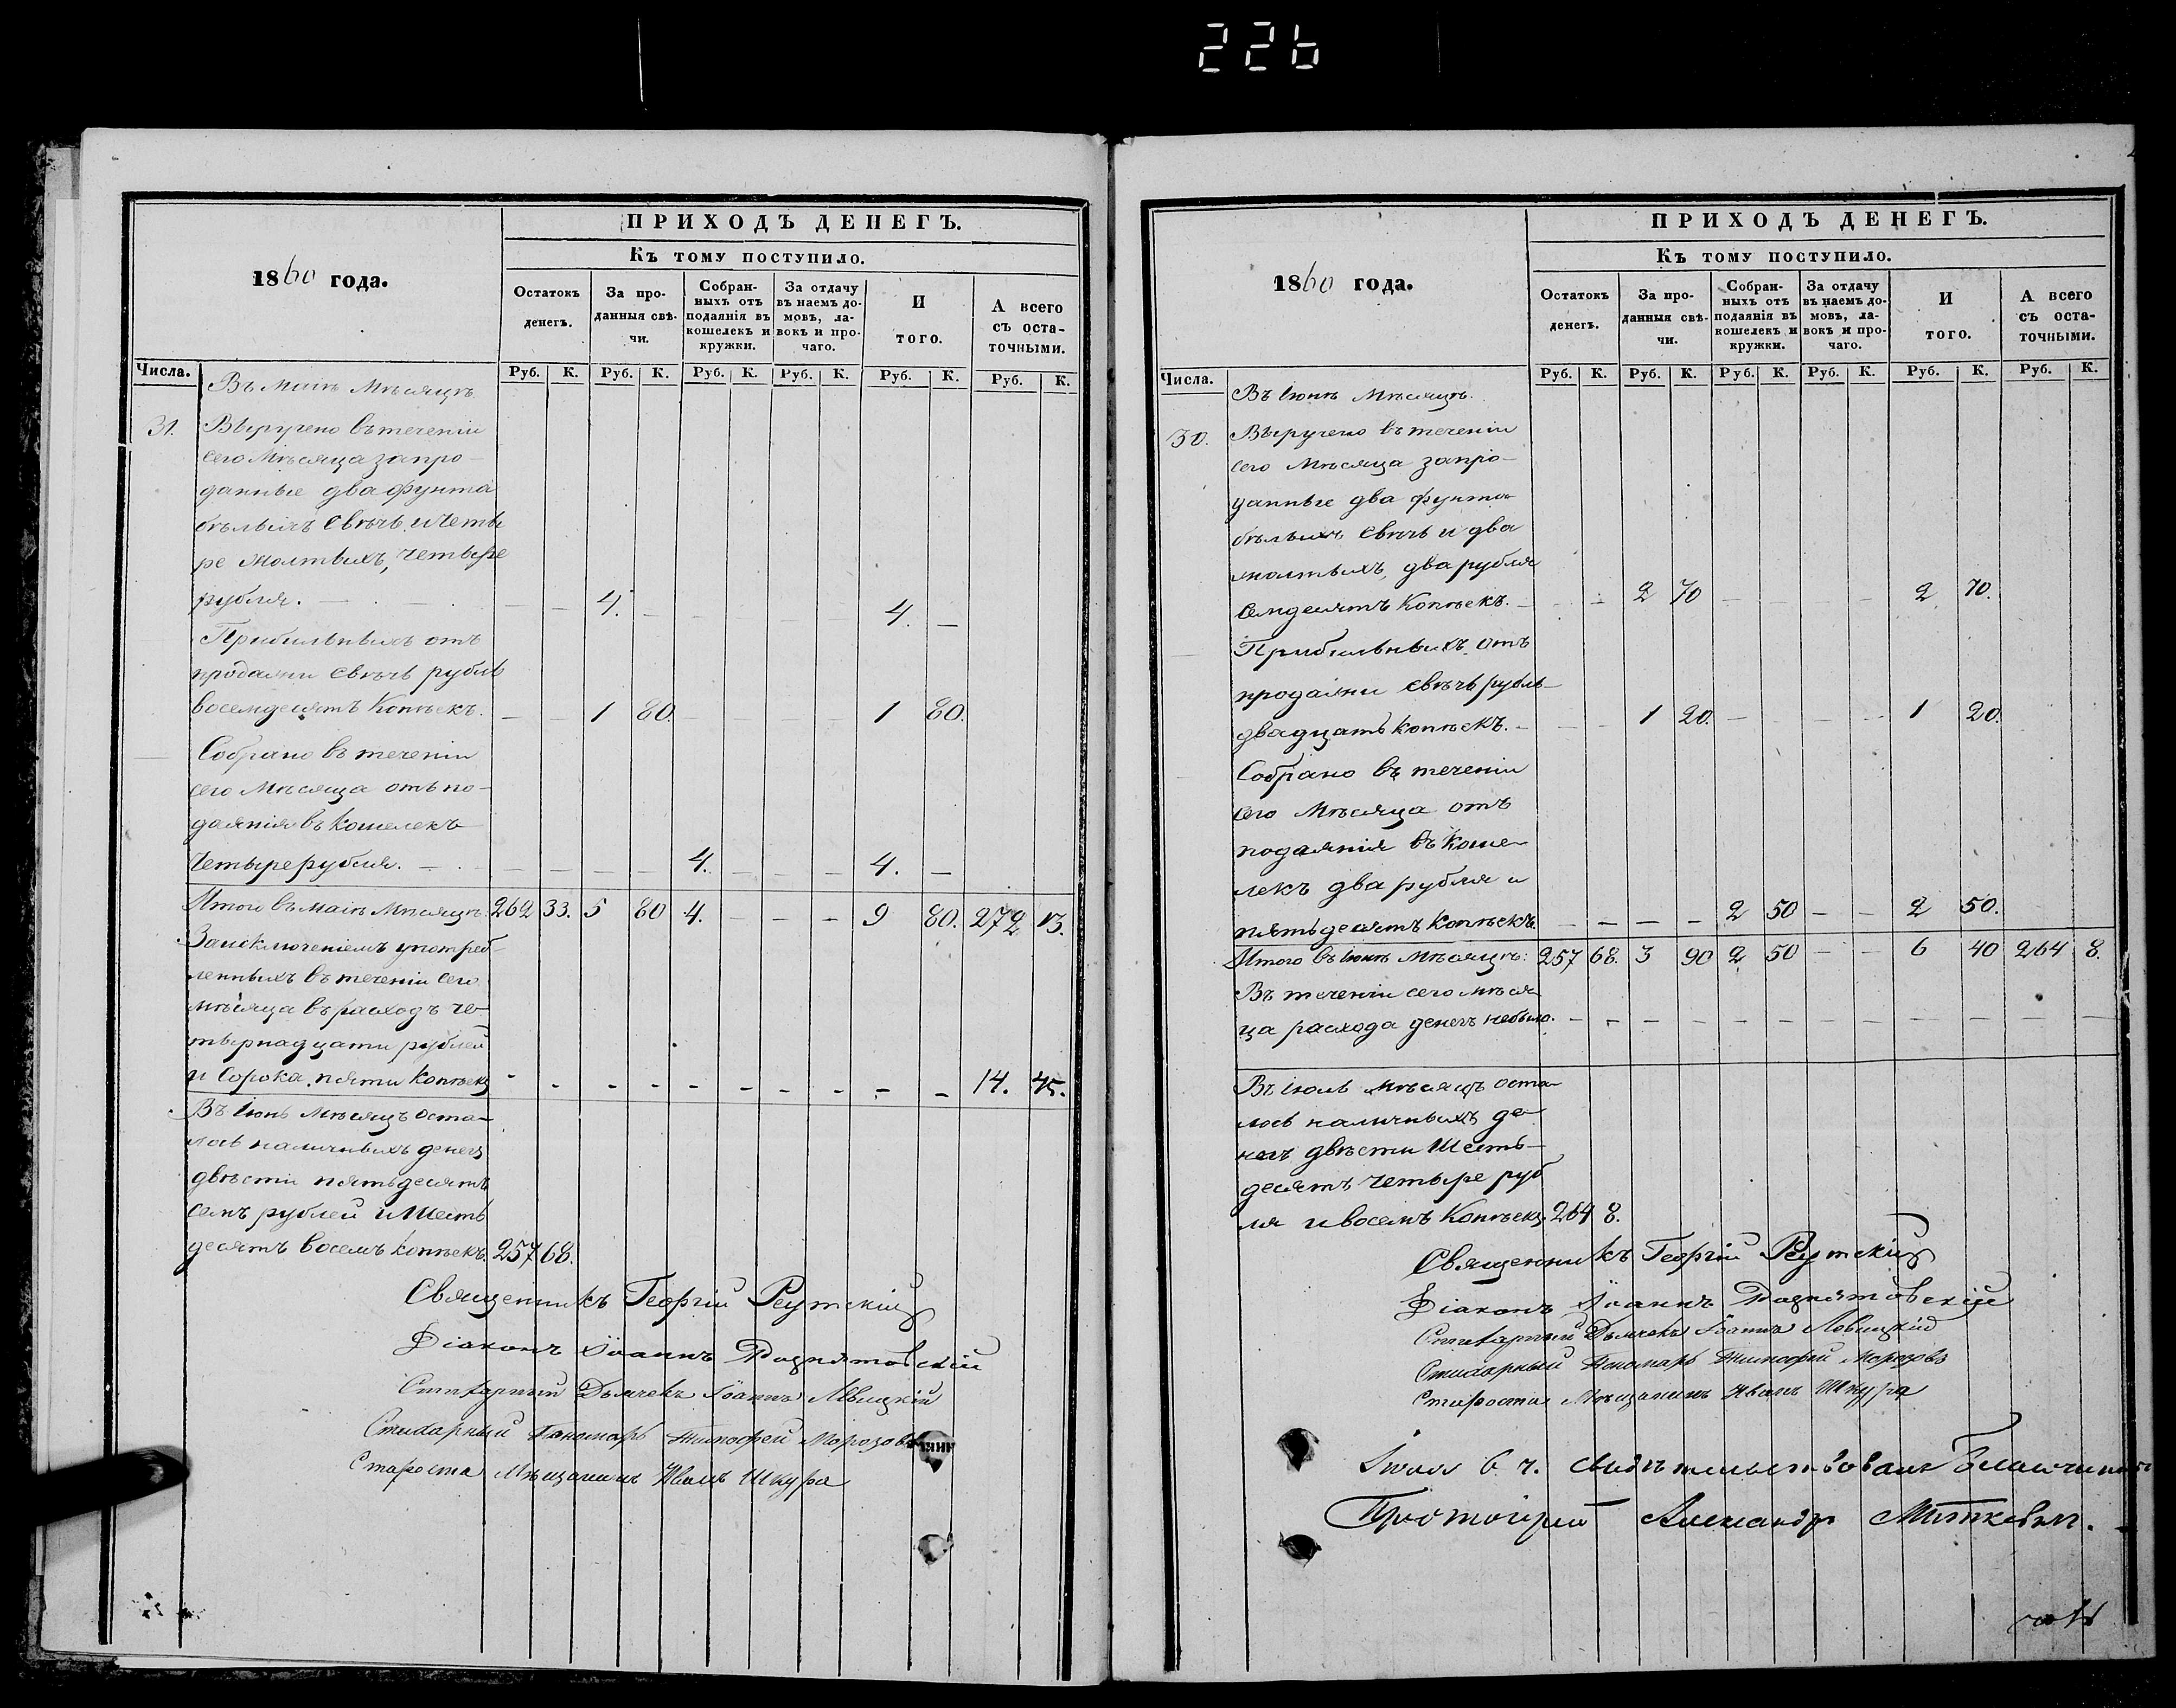 226
ПРИХОДЪ ДЕНЕГЪ.
Къ тому поступило.
1860 года.
Остатокъ денегъ.
За проданныя свѣчи.
Собранныхъ отъ подаянія въ кошелекъ и кружки.
За отдачу въ наемъ домовъ, лавокъ и прочаго.
И того.
А всего съ остаточными.
Числа.
Руб. К. Руб. К. Руб. К. Руб. К. Руб. К. Руб. К.
Въ Маіѣ Мѣсяцѣ.
31. Выручено въ теченіи
сего Мѣсяца за про-
данные два фунта
бѣлыхъ свѣчь и четы
ре жолтыхъ, четыре
рубля. — — — 4. — — — — — 4. —
Прибыльныхъ отъ
продажи свѣчь рубль
восемдесятъ копѣекъ. — — 1 80. — — — — 1 80.
Собрано въ теченіи
сего Мѣсяца отъ по-
даянія въ кошелекъ
четыре рубля. — — — — — 4. — — — 4. —
Итого въ маіѣ Мѣсяцѣ. 262 33. 5 80 4. — — — 9 80. 272 13.
За исключеніемъ употреб-
ленныхъ въ теченіи сего
мѣсяца въ расходъ че-
тырнадцати рублей
и сорока пяти копѣекъ - - - - - - - - - - 14. 45.
Въ Іюнь мѣсяцъ оста-
лось наличныхъ денегъ
двѣсти пятьдесятъ
семь рублей и шесть
десятъ восемь копѣекъ. 257 68.
Священникъ Георгій Реутскій
Діаконъ Іоаннъ
Стихарный Дьячекъ Іоаннъ Левицкій
Стихарный Пономарь Тимофей Морозовъ
Староста Мѣщанинъ Иванъ Шкура
ПРИХОДЪ ДЕНЕГЪ.
Къ тому поступило.
1860 года.
Остатокъ денегъ.
За проданныя свѣчи.
Собранныхъ отъ подаянія въ кошелекъ и кружки.
За отдачу въ наемъ домовъ, лавокъ и прочаго.
И того.
А всего съ остаточными.
Числа.
Руб. К. Руб. К. Руб. К. Руб. К. Руб. К. Руб. К.
Въ Іюнѣ Мѣсяцѣ.
30. Выручено въ теченіи
сего Мѣсяца за про-
данные два фунта
бѣлыхъ свѣчь и два
жолтыхъ, два рубля
семдесятъ копѣекъ. — — — 2 70 — — — — 2 70.
Прибыльныхъ отъ
продажи свѣчь рубль
двадцать копѣекъ. — — — 1 20. — — — — 1 20.
Собрано въ теченіи
сего Мѣсяца отъ
подаянія въ коше-
лекъ два рубля и
пятьдесятъ копѣекъ. — — — — 2 50 — — 2 50.
Итого въ Іюнѣ Мѣсяцѣ: 257 68. 3 90 2 50 — — 6 40 264 8.
Въ теченіи сего мѣся
ца расхода денегъ небыло. — — — — — — — — — — — —
Въ Іюль мѣсяцъ оста-
лось наличныхъ де-
негъ двѣсти шесть-
десятъ четыре руб
ля и восемь копѣекъ 264 8.
Священникъ Георгій Реутскій
Діаконъ Іоаннъ
Стихарный Дьячекъ Іоаннъ Левицкій
Стихарный Пономарь Тимофей Морозовъ
Староста Мѣщанинъ Иванъ Шкура
Іюля 6 ч. свидѣтельствовалъ Благочинный
Протоіерей Александръ